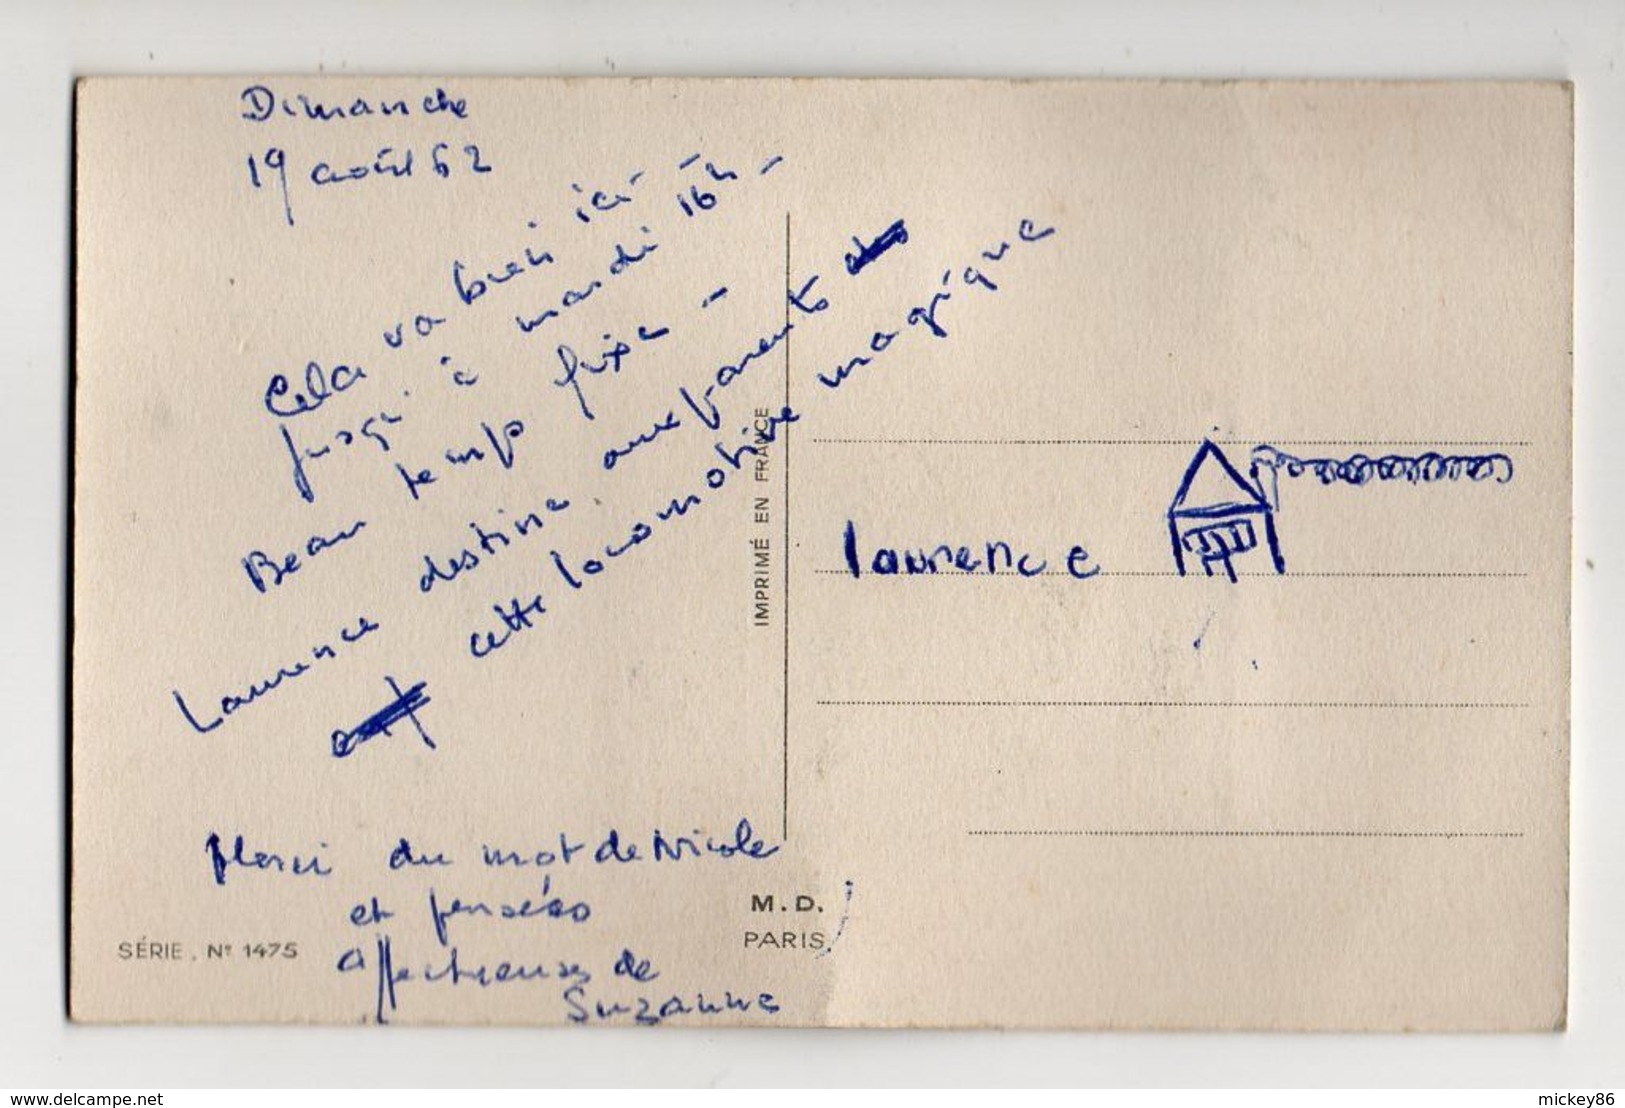 Dimanche
19 août 62
Cela va bien ici -
jusqu'à mardi 16h -
Beau temps fixe -
Laurence destine aux parents
cette locomotive magique
Merci du mot de Nicole
et pensées
affectueuses de
Suzanne
SÉRIE. N° 1475
IMPRIMÉ EN FRANCE
M.D.
PARIS
laurence
www.delcampe.net
mickey86